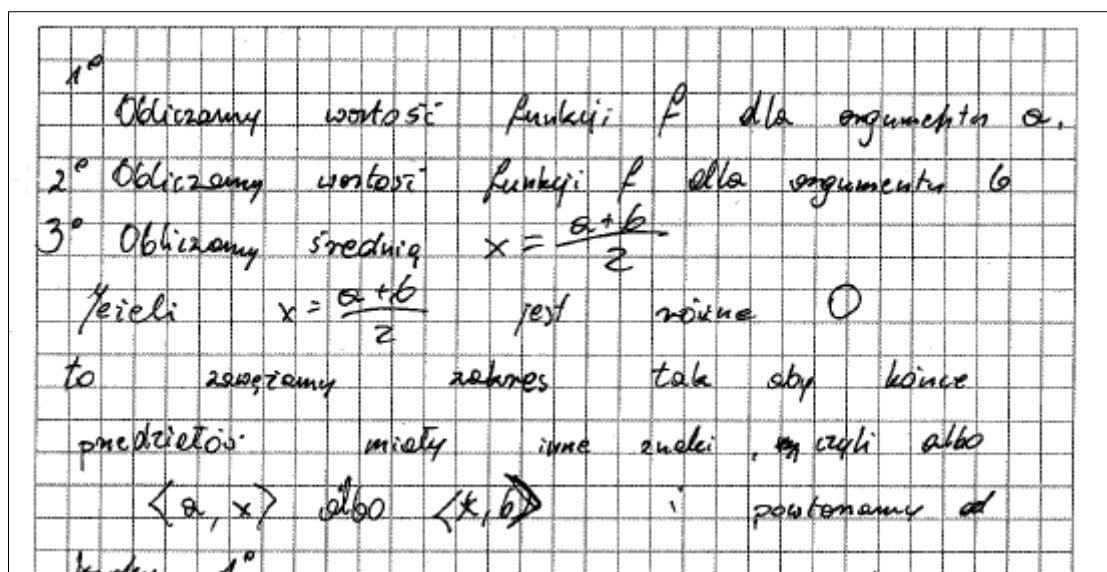 1°
Obliczamy wartość funkcji f dla argumentu a.
2° Obliczamy wartość funkcji f dla argumentu b
3° Obliczamy średnią x = a+b / 2
Jeżeli x = a+b / 2 jest równe 0
to zawężamy zakres tak aby końce
przedziałów miały inne znaki, czyli albo
<a, x> albo <x, b> i powtarzamy od
kroku 1°